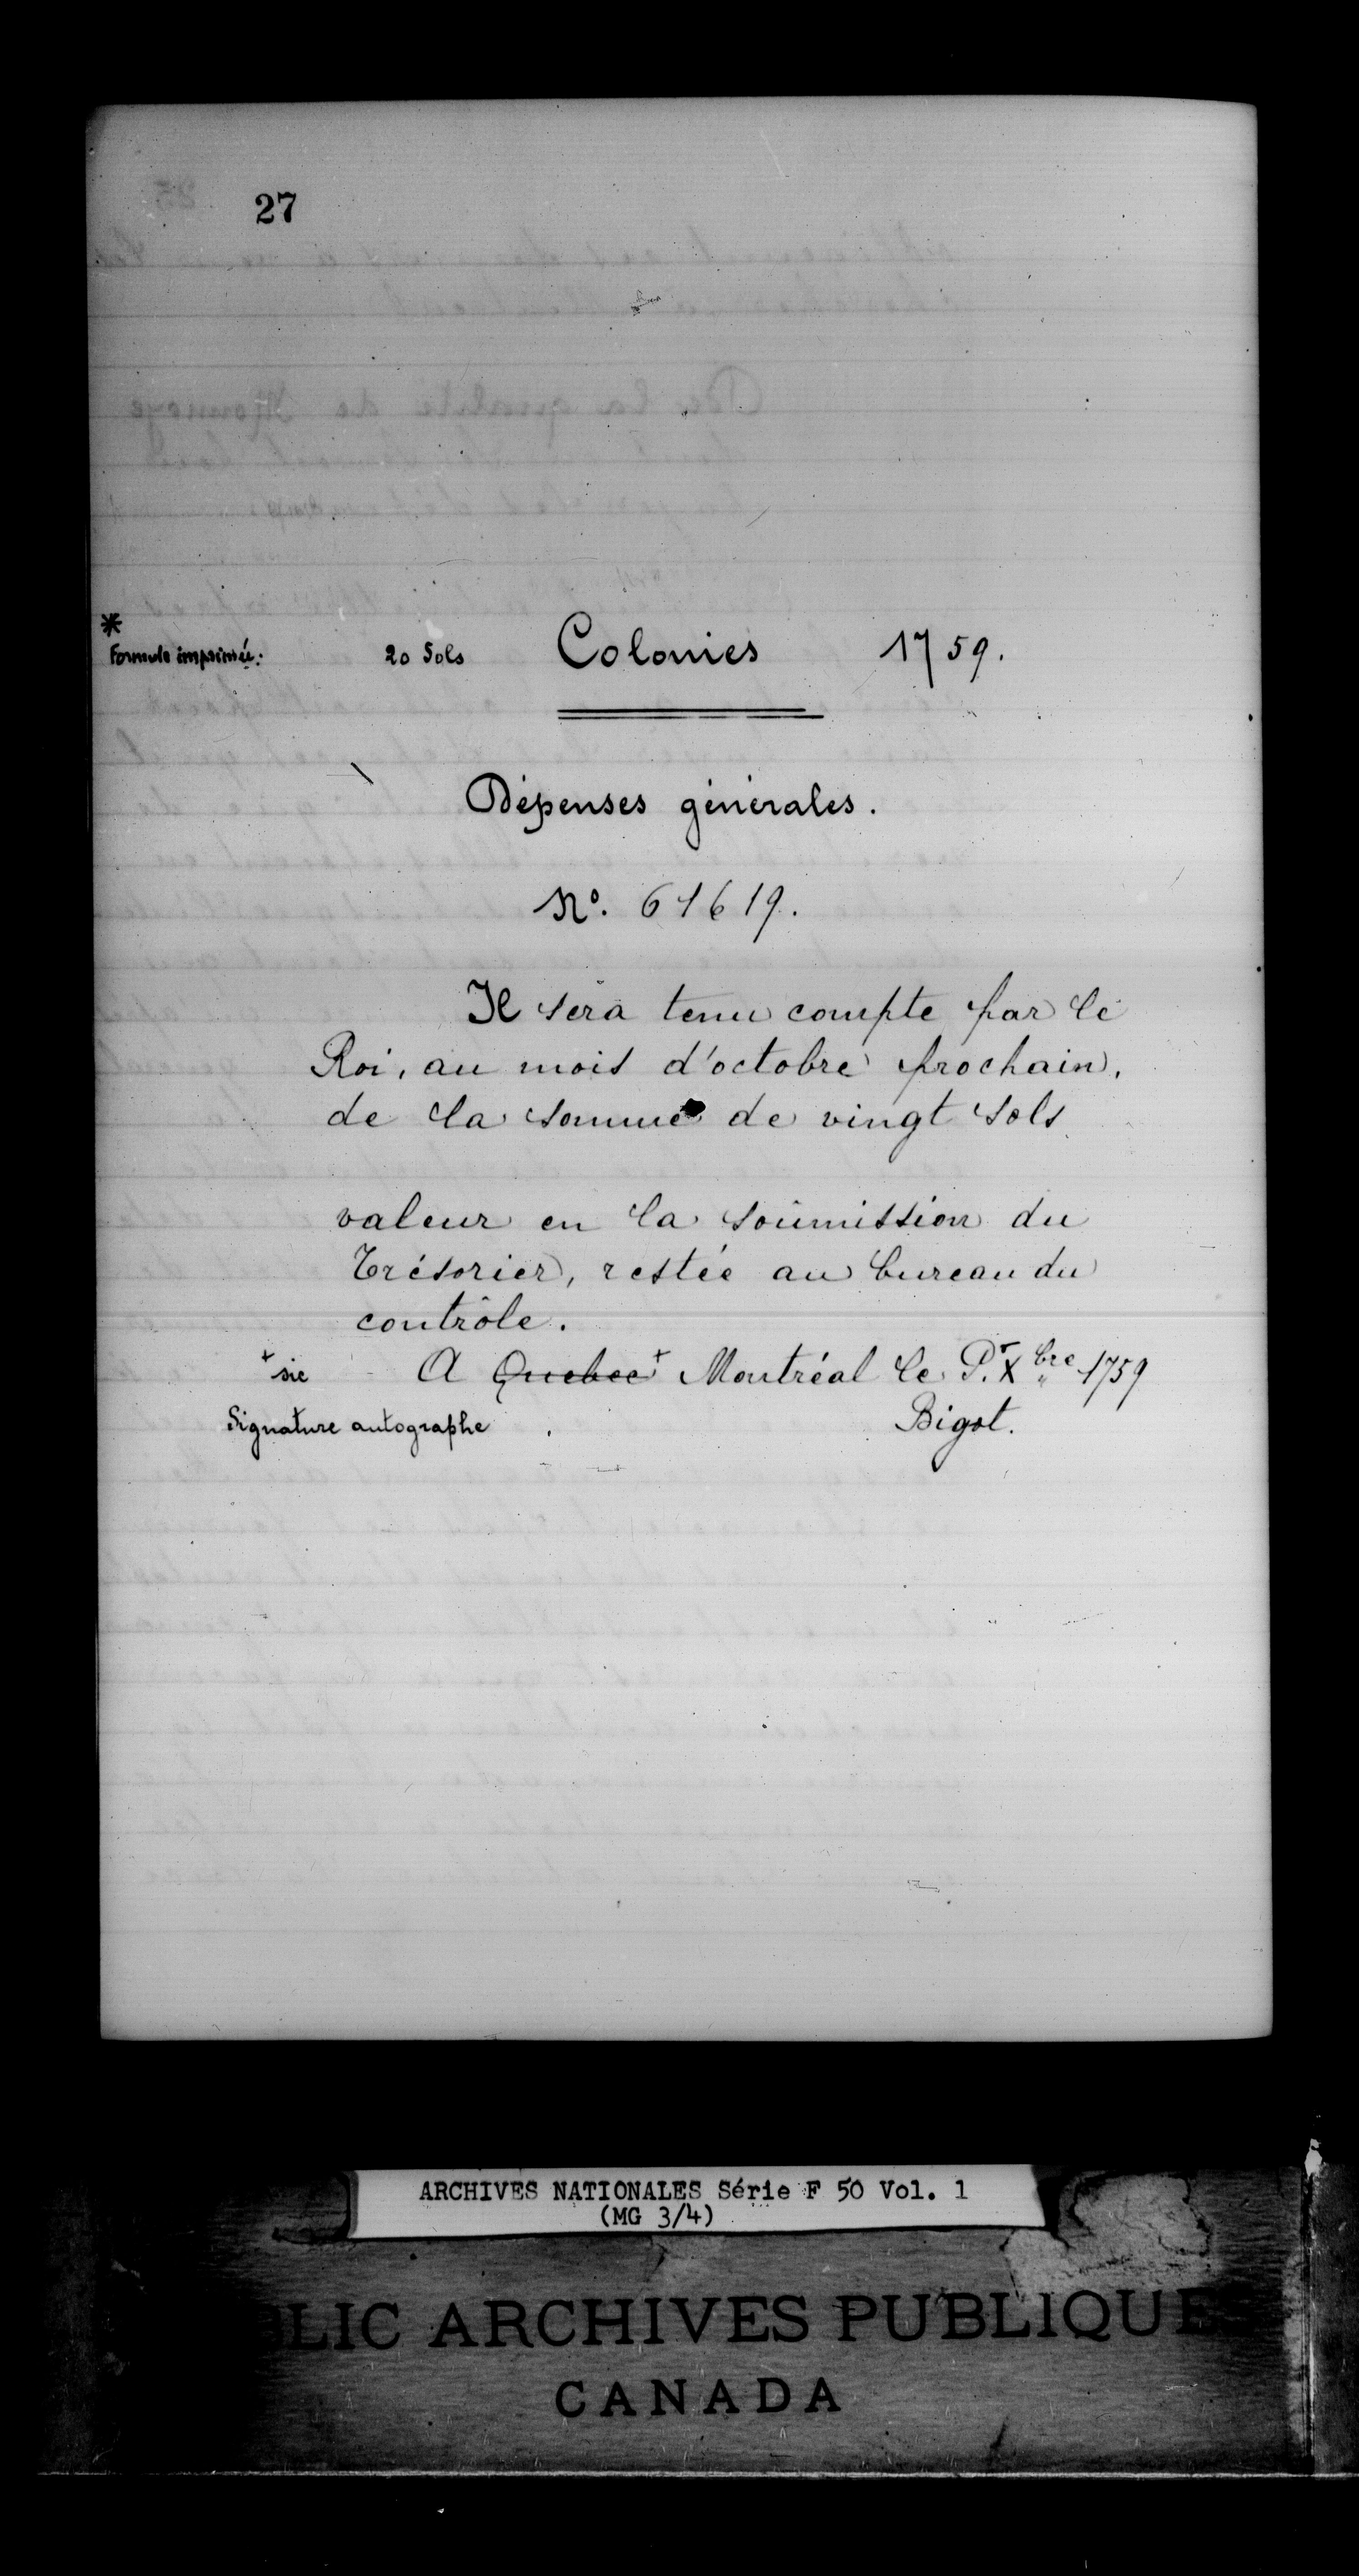 27
*
Formule imprimée: 20 Sols Colonies 1759.
Dépenses générales.
No. 61619.
Il sera tenu compte par le
Roi, au mois d'octobre prochain,
de la somme de vingt sols
valeur en la soumission du
Trésorier, restée au bureau du
contrôle.
+ sic A Quebec + Montréal le Pr. Xbre 1759
Signature autographe Bigot.
ARCHIVES NATIONALES Série F 50 Vol. 1
(MG 3/4)
BLIC ARCHIVES PUBLIQUE
CANADA